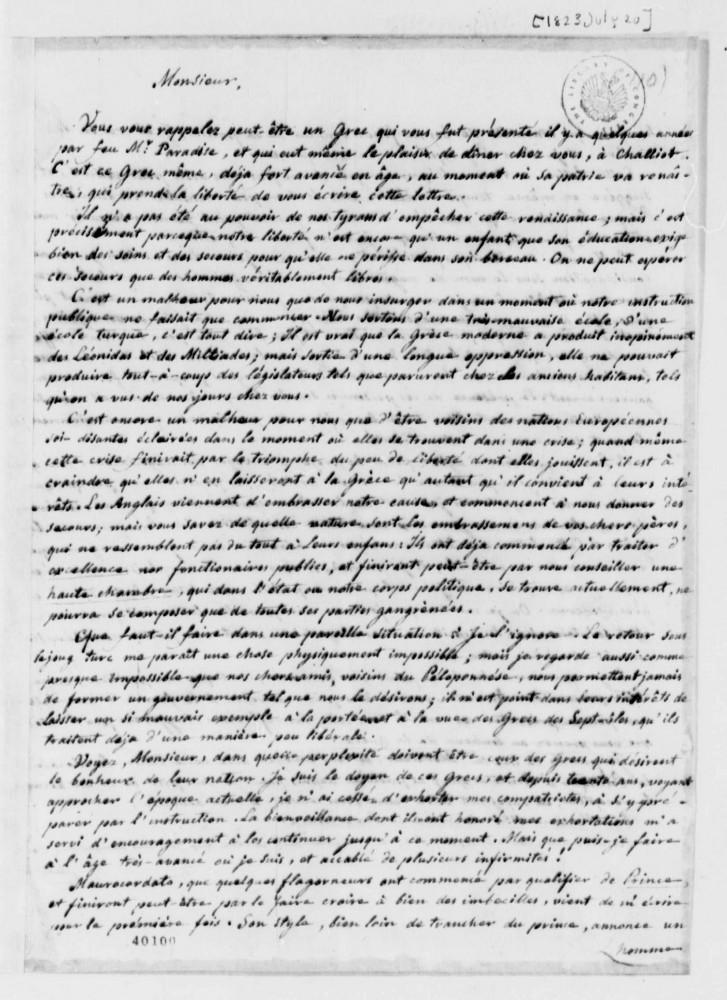 [1823 July 20]
Monsieur,
Vous vous rappelez peut-être un Grec qui vous fut présenté il y a quelques années
par feu Mr. Paradise, et qui eut même le plaisir de dîner chez vous, à Challiot.
C'est ce Grec même, deja fort avancé en âge, au moment où sa patrie va renaî-
tre, qui prend la liberté de vous écrire cette lettre.
Il n'a pas été au pouvoir de nos tyrans d'empêcher cette renaissance; mais c'est
précisément parceque notre liberté n'est encore qu'un enfant, que son éducation exige
bien des soins et des secours pour qu'elle ne périsse dans son berceau. On ne peut espérer
ces secours que des hommes véritablement libres.
C'est un malheur pour nous que de nous insurger dans un moment où notre instruction
publique ne faisait que commencer. Nous sortons d'une très mauvaise école, d'une
école turque, c'est tout dire; Il est vrai que la Grèce moderne a produit inopinément
des Léonidas et des Miltiades; mais sortie d'une longue oppression, elle ne pouvait
produire tout-à-coup des législateurs tels que parurent chez les anciens habitans, tels
qu'on a vus de nos jours chez vous.
C'est encore un malheur pour nous que d'être voisins des nations Européennes
soi-disantes éclairées dans le moment où elles se trouvent dans une crise; quand même
cette crise finirait par le triomphe du peu de liberté dont elles jouissent, il est à
craindre qu'elles n'en laisseront à la Grèce qu'autant qu'il convient à leurs inté-
rêts. Les Anglais viennent d'embrasser notre cause, et commencent à nous donner des
secours; mais vous savez de quelle nature sont les embrassemens de vos chers pères,
qui ne ressemblent pas du tout à leurs enfans: Ils ont déja commencé par traiter d'
excellence nos fonctionaires publics, et finiront peut-être par nous conseiller une
haute chambre, qui dans l'état où notre corps politique, se trouve actuellement, ne
pourra se composer que de toutes ses parties gangrénées.
Que faut-il faire dans une pareille situation? Je l'ignore. Le retour sous
le joug turc me parait une chose physiquement impossible; mais je regarde aussi comme
presque impossible que nos chers amis, voisins du Péloponnèse, nous permettent jamais
de former un gouvernement tel que nous le désirons; il n'est point dans leurs intérêts de
laisser un si mauvais exemple à la portée et à la vue des Grecs des Sept-îles, qu'ils
traitent déja d'une manière peu libérale.
Voyez, Monsieur, dans quelle perplexité doivent être ceux des Grecs qui désirent
le bonheur de leur nation. Je suis le doyen de ces Grecs, et depuis trente ans, voyant
approcher l'époque actuelle, je n'ai cessé d'exhorter mes compatriotes, à s'y pré-
parer par l'instruction. La bienveillance dont ils ont honoré mes exhortations m'a
servi d'encouragement à les continuer jusqu'à ce moment. Mais que puis-je faire
à l'âge très-avancé où je suis, et accablé de plusieurs infirmités!
Maurocordato, que quelques flagorneurs ont commencé par qualifier de Prince,
et finiront peut-être par le faire croire à bien des imbecilles, vient de m'écrire
pour la première fois. Son style, bien loin de trancher du prince, annonce un
homme
40100